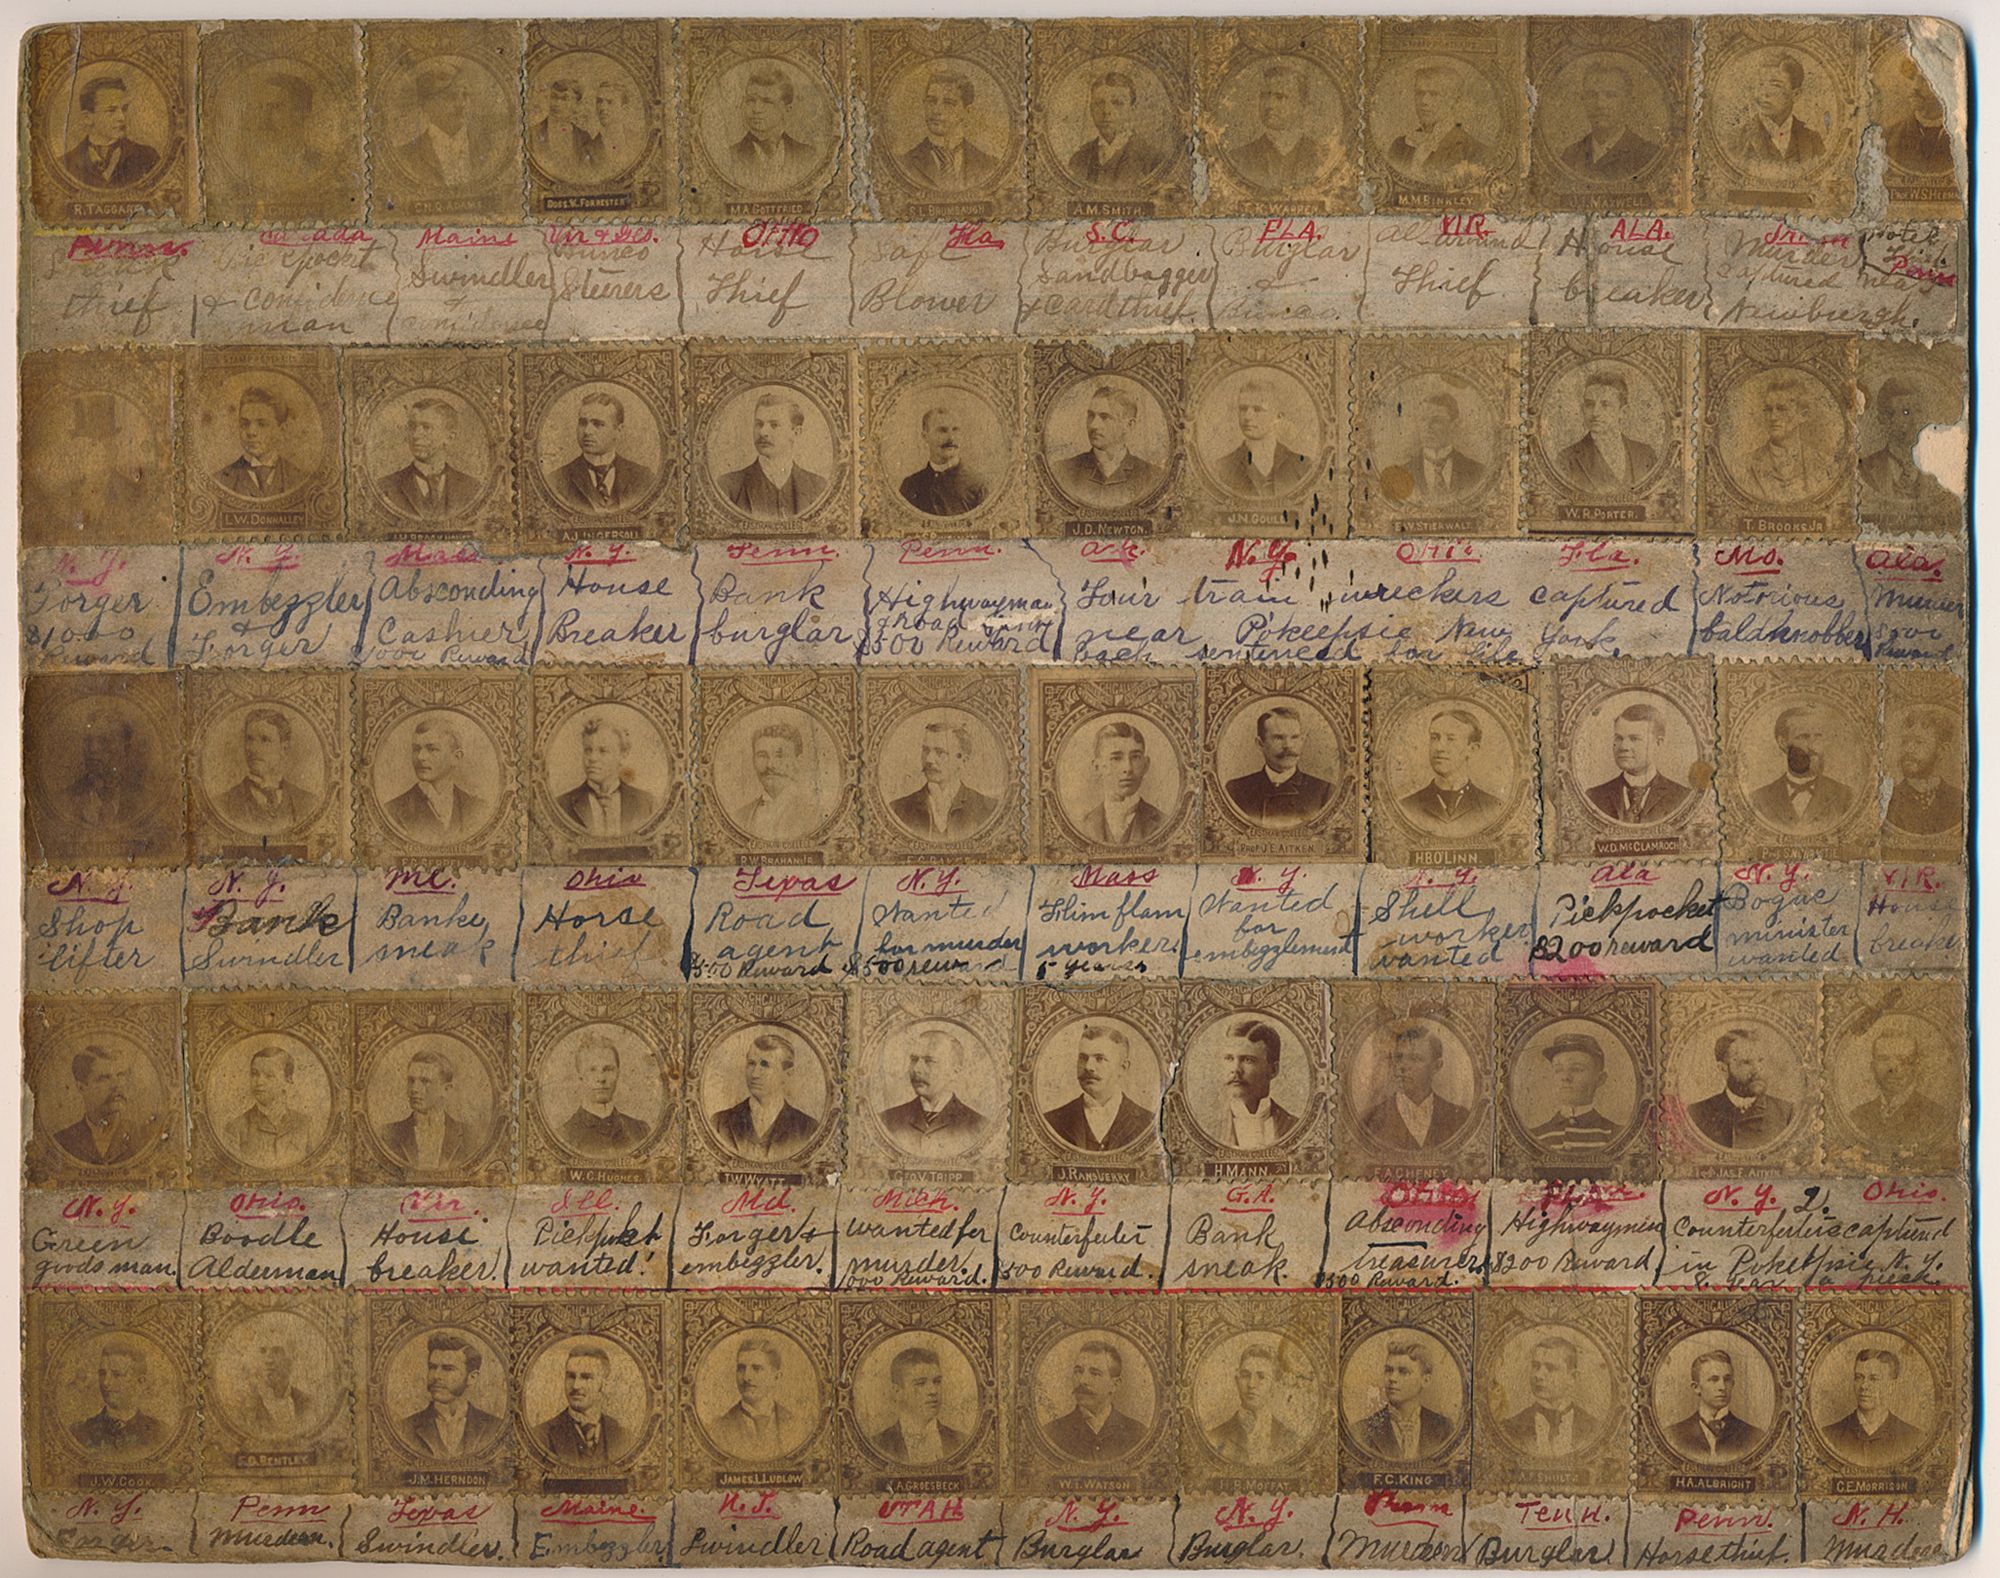 R. TAGGART
DOBS. W. FORRESTER
M.A. GOTTFRIED
S.L. BRUMBAUGH
A.M. SMITH.
K. WARREN
M.M. BINKLEY
J.J. MAXWELL
Penn.
Canada
Maine
Vir & Geo.
OHIO
Fla
S.C.
FLA.
VIR.
ALA.
Penn
thief
Pickpocket
& confidence
man
Swindler
&
confidence
Bunco
Steerers
Horse
Thief
Safe
Blower
Burglar
Sandbagger
& card thief.
Burglar
&
Bunco.
All around
Thief
House
breaker
Murder
captured near
Newburgh.
Hotel
Thief.
L.W. DONNALLEY
A.J. INGERSOLL
EASTMAN COLLEGE
J.D. NEWTON.
J.N. GOULD
E.W. STIERWALT
W.R. PORTER.
T. BROOKS, JR
N. Y.
N. Y.
Mass
N. Y.
Tenn.
Penn.
Ark.
N. Y.
Ohio
Fla.
Mo.
Ala.
Forger
$1000
Reward
Embezzler
&
Forger
Absconding
Cashier
1000 Reward
House
Breaker
Bank
burglar
Highwayman
& road agent
$500 Reward
Four train wreckers captured
near Pokeepsie New York.
each sentenced for life
Notorious
baldknobber
Murder
Reward
R.W. BRAHAN, JR.
EASTMAN COLLEGE
PROF. J.E. AITKEN.
H.B. O'LINN.
W.D. MCCLAMROCH
N. Y.
N. J.
Me.
Ohio
Texas
N. Y.
Mass
N. Y.
N. Y.
Ala
N. Y.
VIR.
Shop
lifter
Bank
Swindler
Bank
sneak
Horse
thief
Road
agent
$500 Reward
Wanted
for murder
$500 reward
Flim flam
worker.
5 years
Wanted
for
embezzlement
Shell
worker
wanted
Pickpocket
$200 reward
Bogue
minister
wanted
House
breaker
W.C. HUGHES
T.W. WYATT
GEO. V. TRIPP
J. RANSVERRY
H. MANN
F.A. CHENEY
JAS. E. AITKEN
N. Y.
Ohio.
Vir.
Ill.
Md.
Mich.
N. Y.
G.A.
Ohio
N. Y. 2.
Ohio.
Green
goods man.
Boodle
Alderman.
House
breaker.
Pickpocket
wanted!
Forger &
embezzler.
wanted for
murder.
1000 Reward.
Counterfeiter
500 Reward.
Bank
sneak.
Absconding
treasurer
$500 Reward.
Highwayman
$200 Reward.
Counterfeiters captured
in Pokeepsie N. Y.
8 year a piece.
J.W. COOK
F.D. BENTLEY
J.M. HERNDON
JAMES. L. LUDLOW
J.A. GROESBECK
W.I. WATSON
H.E. MOFFAT
F.C. KING
A.F. SHULTZ
H.A. ALBRIGHT
C.E. MORRISON
N. Y.
Penn
Texas
Maine.
N. J.
UTAH
N. Y.
N. Y.
Penn
TENN.
Penn.
N. H.
Forger.
Murderer.
Swindler.
Embezzler
Swindler
Road agent
Burglar
Burglar.
Murderer
Burglar
Horse thief.
Murderer